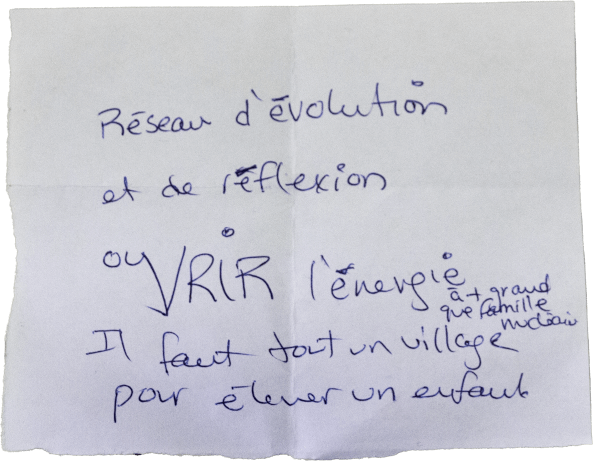 Réseau d'évolution
et de réflexion
ouVRiR l'énergie
à + grand
que famille
nucléair
Il faut tout un village
pour élever un enfant